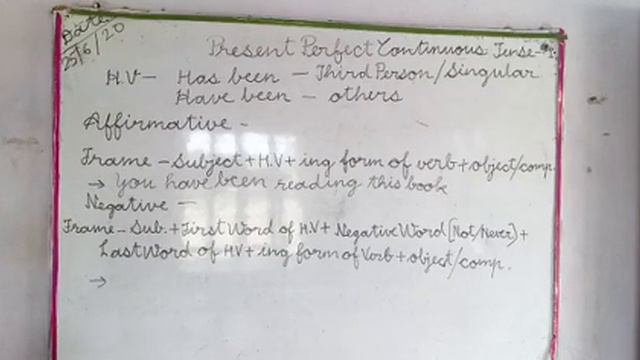 Date
25/6/20
Present Perfect Continuous Tense-
H.V- Has been - Third Person/Singular
Have been - others
Affirmative -
Frame - Subject + H.V + ing form of verb + object/comp.
→ You have been reading this book
Negative -
Frame - Sub. + First Word of H.V + Negative Word [Not/Never) +
Last Word of H.V + ing form of Verb + object/comp.
→